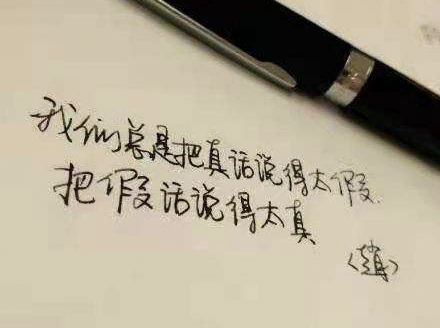 我们总是把真话说得太假.
把假话说得太真